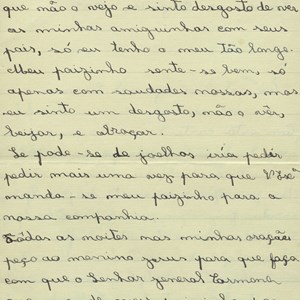 que não o vejo e sinto desgosto de ver
as minhas amiguinhas com seus
pais, só eu tenho o meu tão longe.
Meu paizinho sente-se bem, só
apenas com saudades nossas, mas
eu sinto um desgosto, não o vêr,
beijar, e abraçar.
Se pode-se de joelhos iria pedir
pedir mais uma vez para que V Exª
manda-se meu paizinho para a
nossa companhia.
Tôdas as noites nas minhas orações
peço ao menino jesus para que faça
com que o Senhor general Carmona